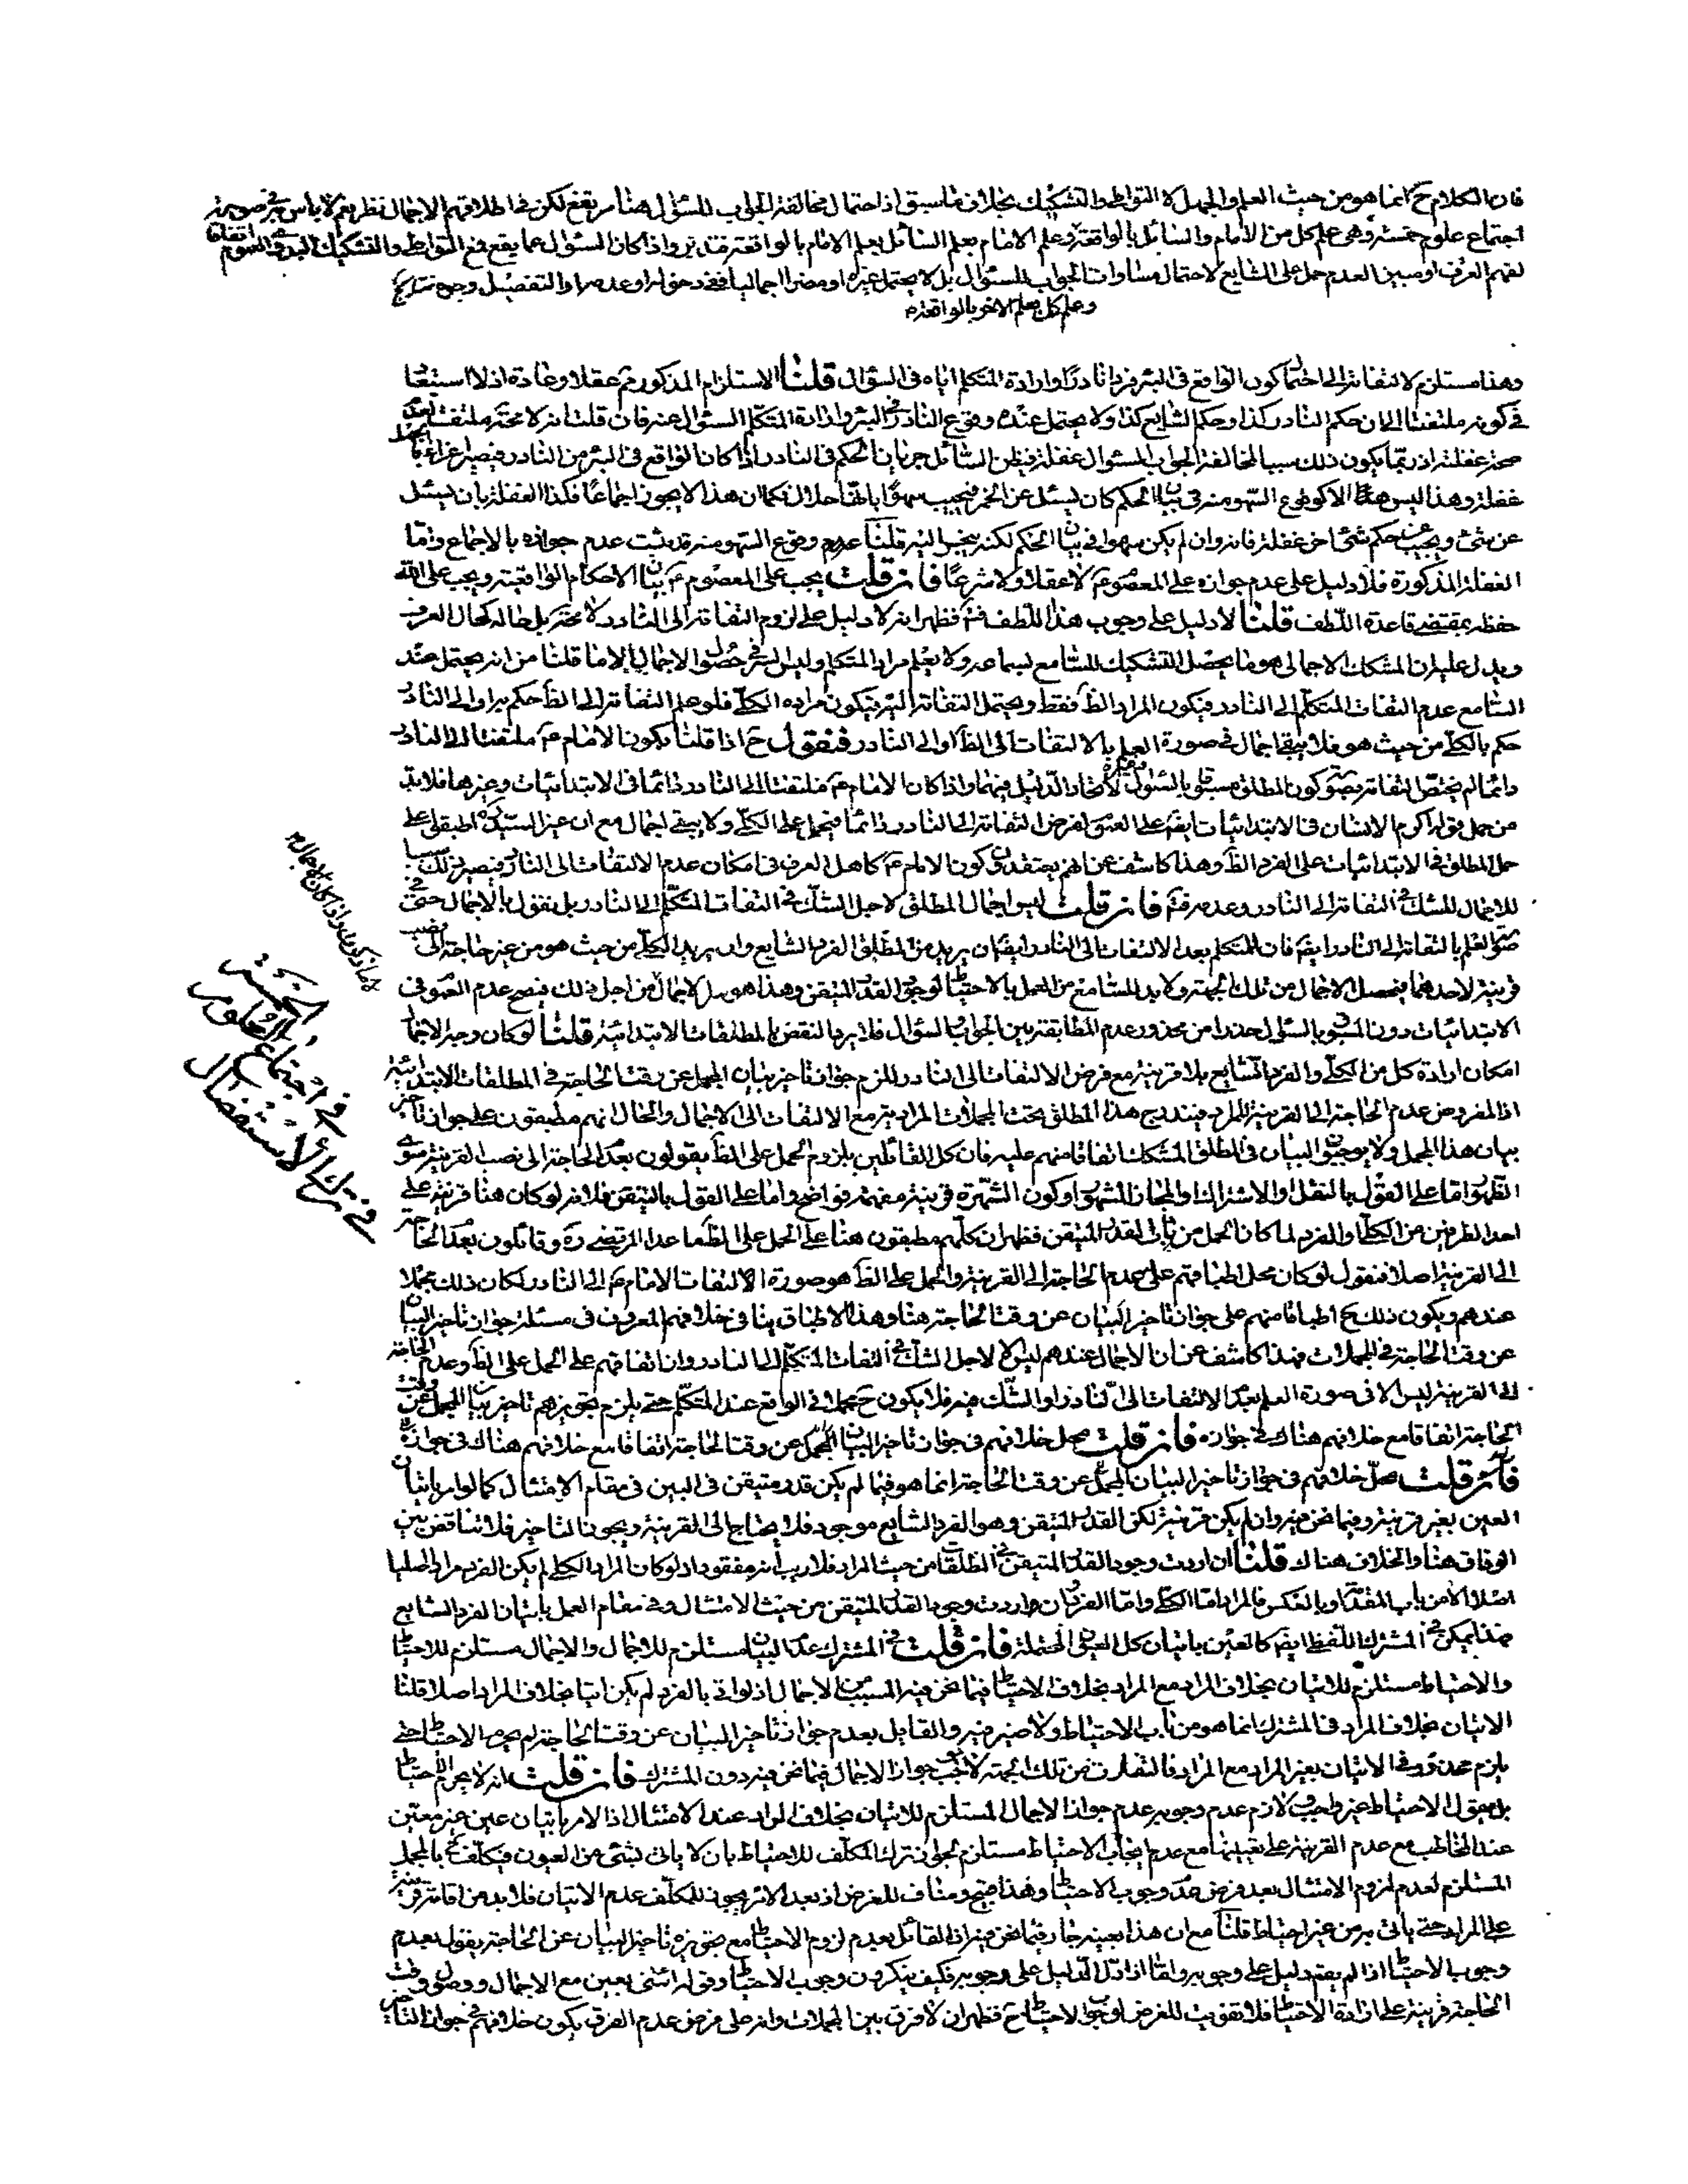 فان الكلام ح انما هو من حيث العلم والجهل لا التواطى والتشكيك بخلاف ما سبق اذ احتمال مخالفة الجواب للسؤال هنا مرتفع لكن فى اطلاقهم الاجمال نظر نعم لا باس به فى صورة
اجتماع علوم خمسة وهى علم كل من الامام والسائل بالواقعة وعلم الامام بعلم السائل بعلم الامام بالواقعة فتدبر واذا كان السؤال عما يقع فمع التواطى والتشكيك البدوى العموم اتفاقا
لفهم العرف او مبين العدم حمل على الشايع لاحتمال مساوات الجواب للسؤال بل لا يحتمل غيره او مضر اجماليا ففى دخوله او عدمه او التفصيل وجوه
وعلم كل بعلم الاخر بالواقعة
وهذا مستلزم لالتفاته الى احتمال كون الواقع فى البئر فردا نادرا وارادة المتكلم اياه فى السؤال قلنا الاستلزام المذكور مم عقلا وعادة اذ لا استبعاد
فى كونه ملتفتا الى ان حكم النادر كذا وحكم الشايع كذا ولا يحتمل عنده وقوع النادر فى البئر وارادة المتكلم السؤال عنه فان قلت انه لا محة ملتفت
غفلته اذ ربما يكون ذلك سببا لمخالفة الجواب للسؤال غفلة فيظن السائل جريان الحكم فى النادر اذا كان الواقع فى البئر من النادر فيصير اغراء بالجهل
غفلة وهذا ليس الا كوقوع السهو منه فى بيان الحكم كان يسئل عن الخمر فيجيب سهوا بانها حلال فكما ان هذا لا يجوز اجماعا فكذا الغفلة بان يسئل
عن شئ ويجيب عن حكم شئ اخر غفلة فانه وان لم يكن سهوا فى بيان الحكم لكنه ينجر اليه قلنا عدم وقوع السهو منه قد ثبت عدم جوازه بالاجماع واما
الغفلة المذكورة فلا دليل على عدم جوازه على المعصوم ع لا عقلا ولا شرعا فان قلت يجب على المعصوم ع بيان الاحكام الواقعية ويجب على الله
حفظه بمقتضى قاعدة اللطف قلنا لا دليل على وجوب هذا اللطف فتم فظهر انه لا دليل على لزوم التفاته الى النادر لا محة بل حاله كحال العرف
ويدل عليه ان المشكك الاجمالى هو ما يحصل التشكيك للسامع بسماعه ولا يعلم مراد المتكلم وليس السر فى حصول الاجمال الا ما قلنا من انه يحتمل عند
السامع عدم التفات المتكلم الى النادر فيكون المراد الظ فقط ويحتمل التفاته اليه فيكون مراده الكلى فلو علم التفاته الى الظ حكم به او الى النادر
حكم بالكلى من حيث هو فلا يبقى اجمال فى صورة العلم بالالتفات الى الظ او الى النادر فنقول ح اذا قلنا بكون الامام ع ملتفتا الى النادر
دائما لم يختص التفاته بصورة كون المطلق مسبوقا بالسؤال لاتحاد الدليل فيهما واذا كان الامام ع ملتفتا الى النادر دائما فى الابتدائيات وغيرها فلا بد
من حمل قوله اكرم الانسان فى الابتدائيات ايضا على العموم لفرض التفاته الى النادر دائما فيحمل على الكلى ولا يبقى اجمال مع ان غير السيد ره اطبقوا على
حمل المطلق فى الابتدائيات على الفرد الظ وهذا كاشف عن انهم يعتقدون كون الامام ع كاهل العرف فى امكان عدم الالتفات الى النادر فيصير ذلك سببا
للاجمال للشك فى التفاته الى النادر وعدمه فتم فان قلت ليس اجمال المطلق لاجل الشك فى التفات المتكلم الى النادر بل نقول بالاجمال حتى فى
صورة العلم بالتفاته الى النادر ايضا فان للمتكلم بعد الالتفات الى النادر ايضا ان يريد من المطلق الفرد الشايع وان يريد الكلى من حيث هو من غير حاجة الى نصب
قرينة لاحدهما فيحصل الاجمال من تلك الجهة ولا بد للسامع من العمل بالاحتياط لوجود القدر المتيقن وهذا هو سر الاجمال فمن اجل ذلك فيصح عدم العموم فى
الابتدائيات دون المسبوق بالسؤال حذرا من محذور عدم المطابقة بين الجواب والسؤال فلا يرد النقض بالمطلقات الابتدائية قلنا لو كان وجه الاجمال
امكان ارادة كل من الكلى والفرد الشايع بلا قرينة مع فرض الالتفات الى النادر للزم جواز تاخير بيان المجمل عن وقت الحاجة فى المطلقات الابتدائية
اذ المفروض عدم الحاجة الى القرينة للمراد فيندرج هذا المطلق تحت المجملات المرادية مع الالتفات الى الاجمال والحال انهم مطبقون على جواز تاخير
بيان هذا المجمل ولا يوجبون البيان فى المطلق المشكك اتفاقا منهم عليه فان كل القائلين بلزوم الحمل على الظ يقولون بعدم الحاجة الى نصب القرينة سوى
الظهور اما على القول بالنقل او الاشتراك والمجاز المشهور او كون الشهرة قرينة مفهمة فواضح واما على القول بالمتيقن فلانه لو كان هنا قرينة على
احد الطرفين من الكلى والفرد لما كان الحمل من باب القدر المتيقن فظهر ان كلهم مطبقون هنا على الحمل على الظ ما عدا المرتضى ره وقائلون بعدم الحاجة
الى القرينة اصلا فنقول لو كان محل اطباقهم على عدم الحاجة الى القرينة والحمل على الظ هو صورة الالتفات الامام ع الى النادر لكان ذلك مجملا
عندهم ويكون ذلك ح اطباقا منهم على جواز تاخير البيان عن وقت الحاجة هنا وهذا الاطباق ينافى خلافهم المعروف فى مسئلة جواز تاخير البيان
عن وقت الحاجة فى المجملات فهذا كاشف عن ان الاجمال عندهم ليس الا لاجل الشك فى التفات المتكلم الى النادر وان اتفاقهم على الحمل على الظ وعدم الحاجة
الى القرينة ليس الا فى صورة العلم بعدم الالتفات الى النادر او الشك فيه فلا يكون ح مجملا فى الواقع عند المتكلم حتى يلزم تجويزهم تاخير بيان المجمل عن وقت
الحاجة اتفاقا مع خلافهم هناك فى جوازه فان قلت محل خلافهم فى جواز تاخير البيان المجمل عن وقت الحاجة اتفاقا مع خلافهم هناك فى جوازه
فان قلت محل خلافهم فى جواز تاخير البيان المجمل عن وقت الحاجة انما هو فيما لم يكن قدر متيقن فى البين فى مقام الامتثال كما لو امر باتيان
العين بغير قرينة وفيما نحن فيه وان لم يكن قرينة لكن القدر المتيقن وهو الفرد الشايع موجود فلا يحتاج الى القرينة ويجوز التاخير فلا تناقض بين
الوفاق هنا والخلاف هناك قلنا ان اردت وجود القدر المتيقن فى المطلقات من حيث المراد فلا ريب انه مفقود اذ لو كان المراد الكلى لم يكن الفرد مرادا اصليا
اصلا الا من باب المقدمة وبالعكس فالمراد اما الكلى واما الفرد وان اردت وجود القدر المتيقن من حيث الامتثال وفى مقام العمل باتيان الفرد الشايع
فهذا يمكن فى المشترك اللفظى ايضا كالعين باتيان كل المعانى المحتملة فان قلت فى المشترك عدم البيان مستلزم للاجمال والاجمال مستلزم للاحتياط
والاحتياط مستلزم للاتيان بخلاف المراد مع المراد بخلاف الاحتياط فيما نحن فيه المسبب من الاجمال اذ لو اتى بالفرد لم يكن اتيا بخلاف المراد اصلا قلنا
الاتيان بخلاف المراد فى المشترك انما هو من باب الاحتياط ولا ضير فيه والقايل بعدم جواز تاخير البيان عن وقت الحاجة لم يحرم الاحتياط حتى
يلزم محذور فى الاتيان بغير المراد مع المراد فالتفارق من تلك الجهة لا يوجب جواز الاجمال فيما نحن فيه دون المشترك فان قلت انه لا يحرم الاحتياط
بل يقول الاحتياط غير واجب ولازم عدم وجوبه عدم جواز الاجمال المستلزم للاتيان بخلاف المراد عند الامتثال اذ الامر باتيان عين غير معين
عند المخاطب مع عدم القرينة على تعيينها مع عدم ايجاب الاحتياط مستلزم لجواز ترك المكلف للاحتياط بان لا ياتى بشئ من العيون فيكلف ح بالمجمل
المستلزم لعدم لزوم الامتثال بعد فرض عدم وجوب الاحتياط وهذا قبيح ومناف للغرض اذ بعد الامر يجوز للمكلف عدم الاتيان فلا بد من اقامة قرينة
على المراد حتى ياتى به من غير احتياط قلنا مع ان هذا بعينه جار فيما نحن فيه اذ القائل بعدم لزوم الاحتياط مع تجويزه تاخير البيان عن الحاجة يقول بعدم
وجوب الاحتياط اذا لم يقم دليل على وجوبه واما اذا دل الدليل على وجوبه فكيف ينكرون وجوب الاحتياط وقوله ائتنى بعين مع الاجمال ووصول وقت
الحاجة قرينة على ارادة الاحتياط فلا تفويت للغرض لوجوب الاحتياط ح فظهر ان لا فرق بين المجملات وانه على فرض عدم الفرق يكون خلافهم فى جواز التاخير
فى اجتماع العلوم الخمسة
فى ترك الاستفصال